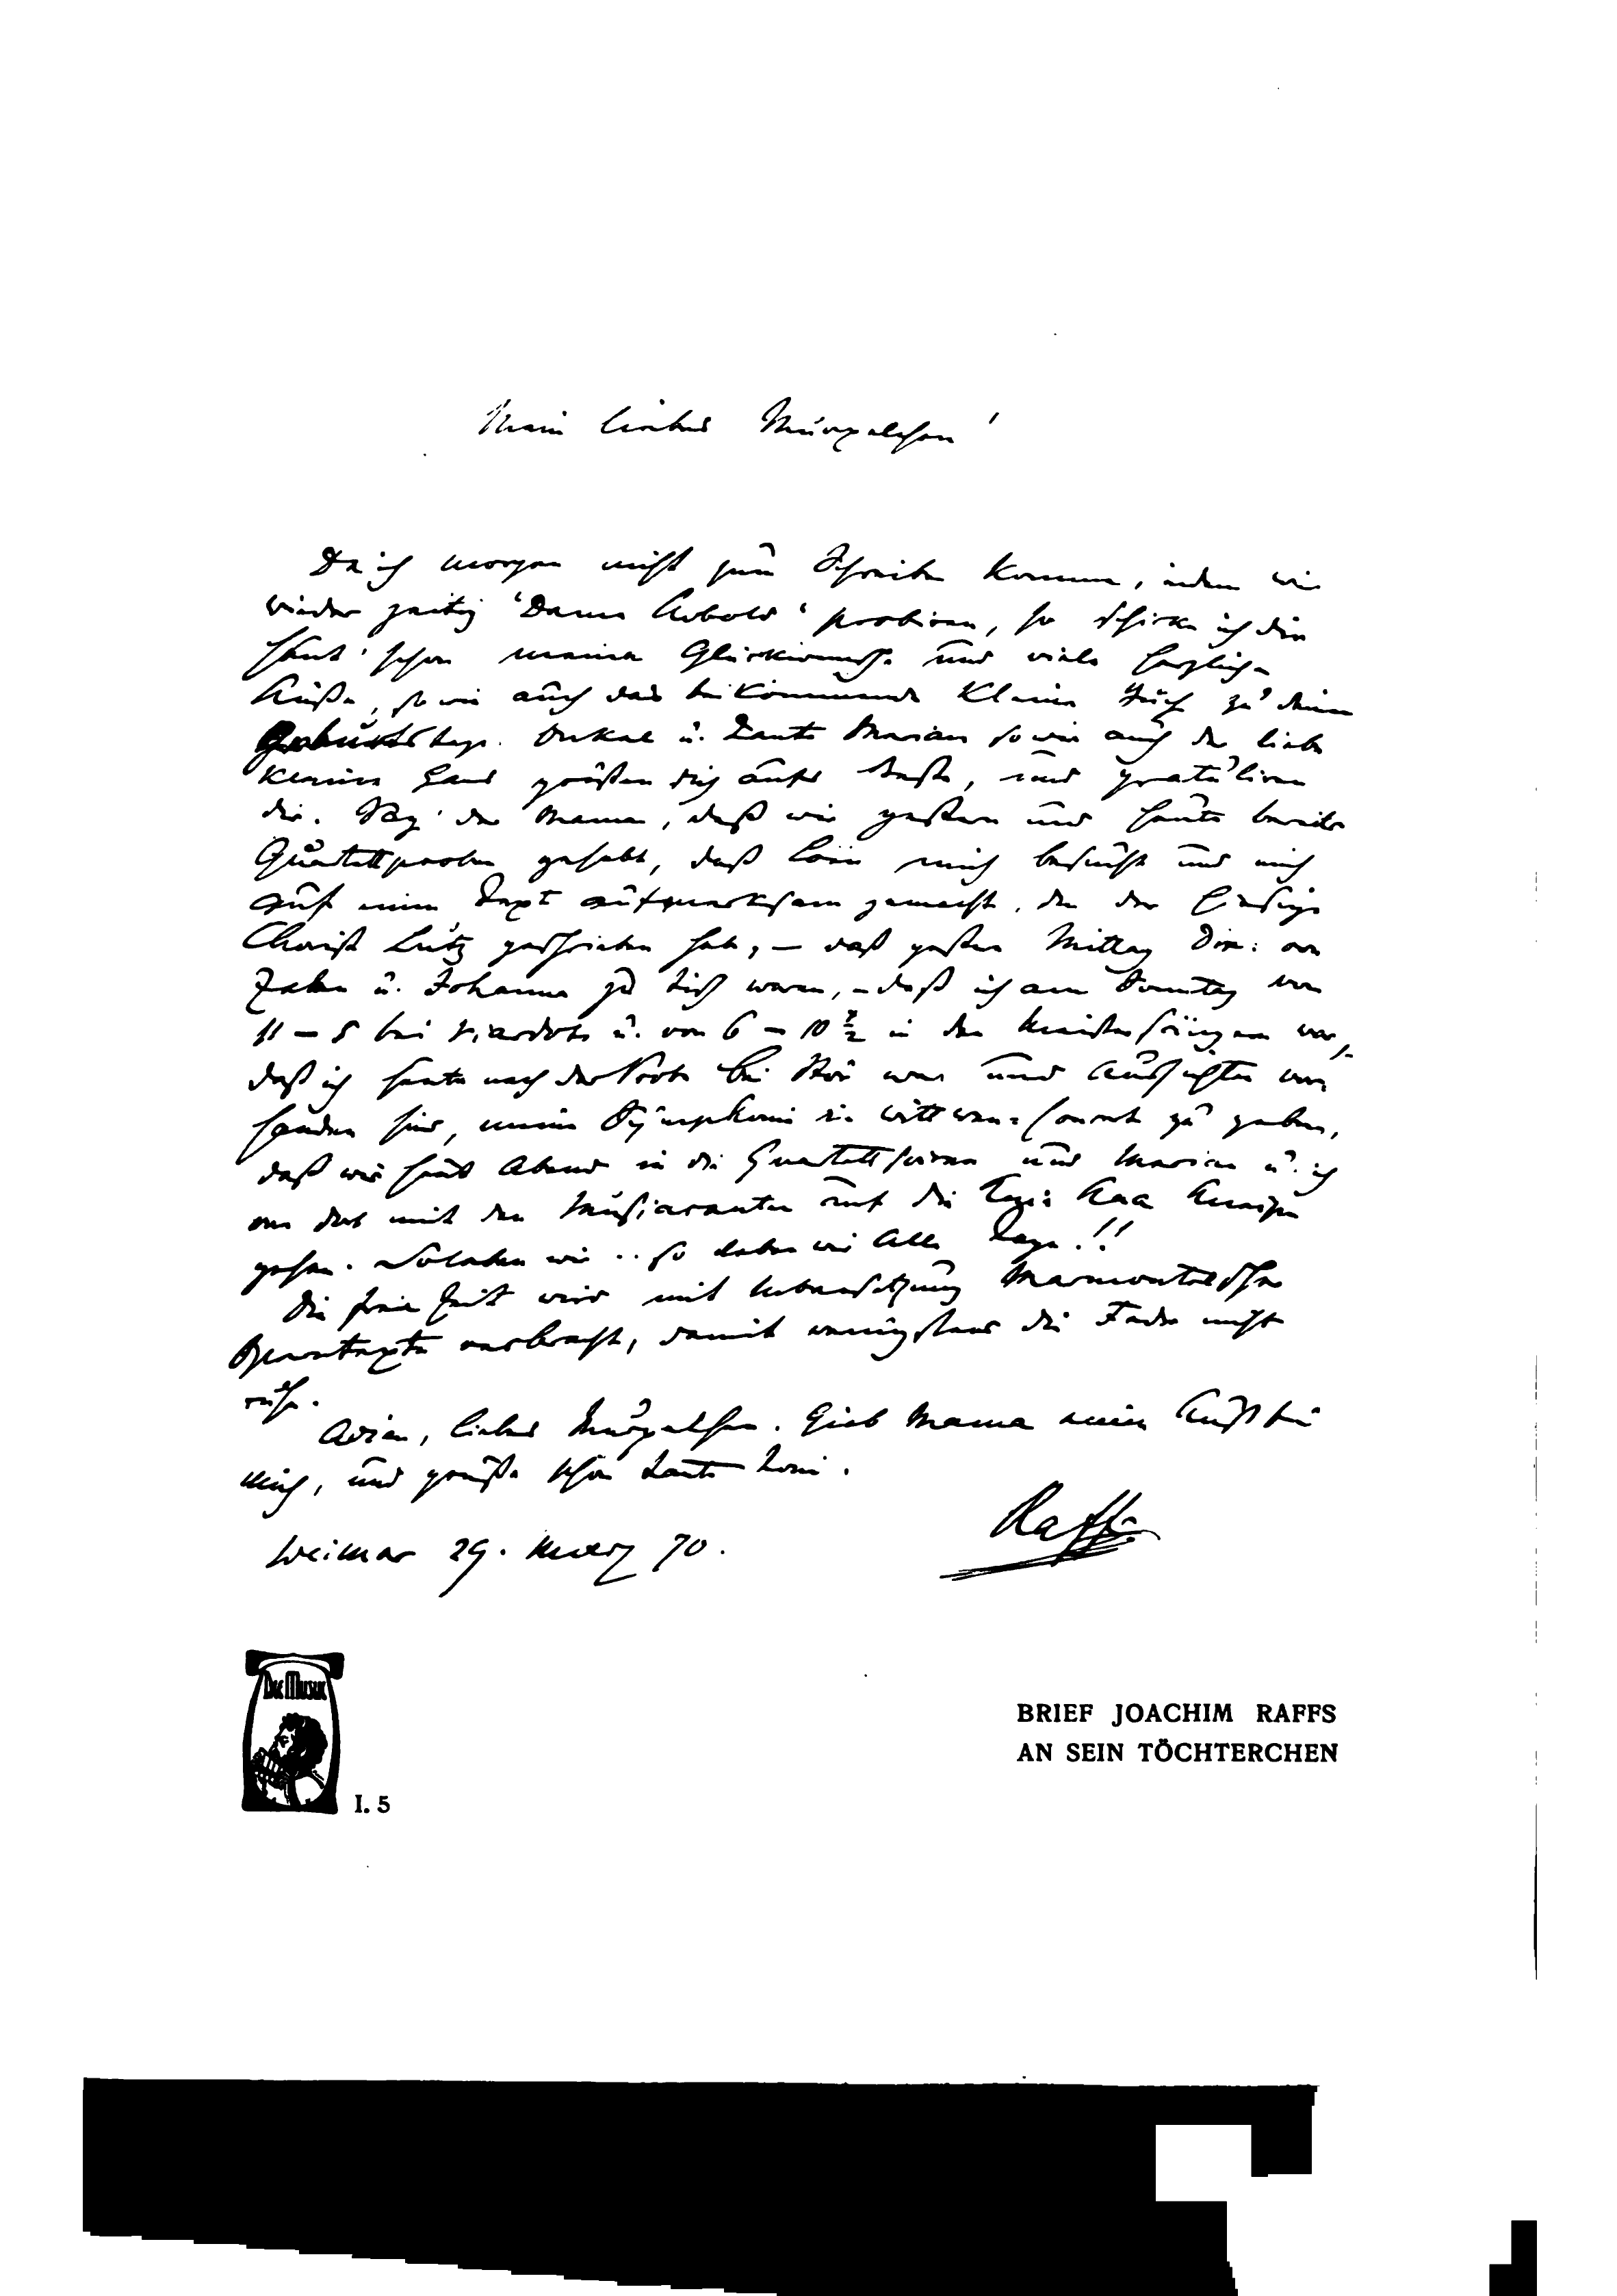 Mein liebes Murzelchen!
Da ich morgen nicht zum Schreiben komme, indem wir
wieder zeitig "Dame Kobold" probiren, so schicke ich dir
heut' schon meine Glückwünsche und viele herzliche
Küße, so wie auch das beikommende kleine Buch zu deinem
Geburtstage. Onkel u. Tante Marian sowie auch der liebe
kleine Hans grüßen dich aufs Beste, und gratuliren
dir. Sag' der Mama, daß wir gestern und heute bereits
Quartettproben gehabt, daß mich besucht und mich
auf einen Text aufmerksam gemacht, den der hiesige
Lutz geschrieben hat, – daß gestern Mittag von
u. Johanna zu Tisch waren, – daß ich am Sonntag von
11 – 5 bei Viardots u. von 6 – 10 ½ in den Meistersingern war,
daß ich heute nach der Probe bei war und Aussichten vor-
handen sind, meine Symphonie im zu geben,
daß wir heut Abend in die Quartettsoiree und Marian u. ich
mit den Musicanten auf die Kneipe
gehen. wir .. so leben wir alle Tage.!!
Die freie Zeit wird mit Uebersetzung Marmontelscher
Operntexte verbracht, damit wenigstens die Feder nicht
ruhe.
Adieu, liebes Murzelchen. Gieb Mama einen Kuß für
mich, und grüße schön Tante Toni.
Weimar 29. Maerz 70.
Raff
DIE MUSIK
I. 5
BRIEF JOACHIM RAFFS
AN SEIN TÖCHTERCHEN